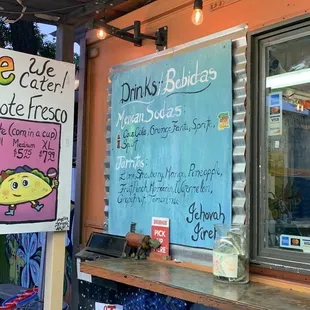 e We
Cater!
ote Fresco
te (corn in a cup)
Medium XL
$5.75 $7.99
Drinks + Bebidas
Mexican Sodas:
Coca Cola, Orange Fanta, Sprite
Jarritos:
Lime, Strawberry, Mango, Pineapple,
Fruit Punch, Mandarin, Watermelon,
Grapefruit, Guava, Tamarindo
Jehovah
Jireh
PICK